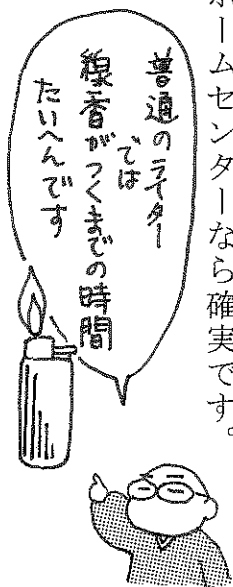 ホームセンターなら確実です。
普通のライター
では
線香がつくまでの時間
たいへんです